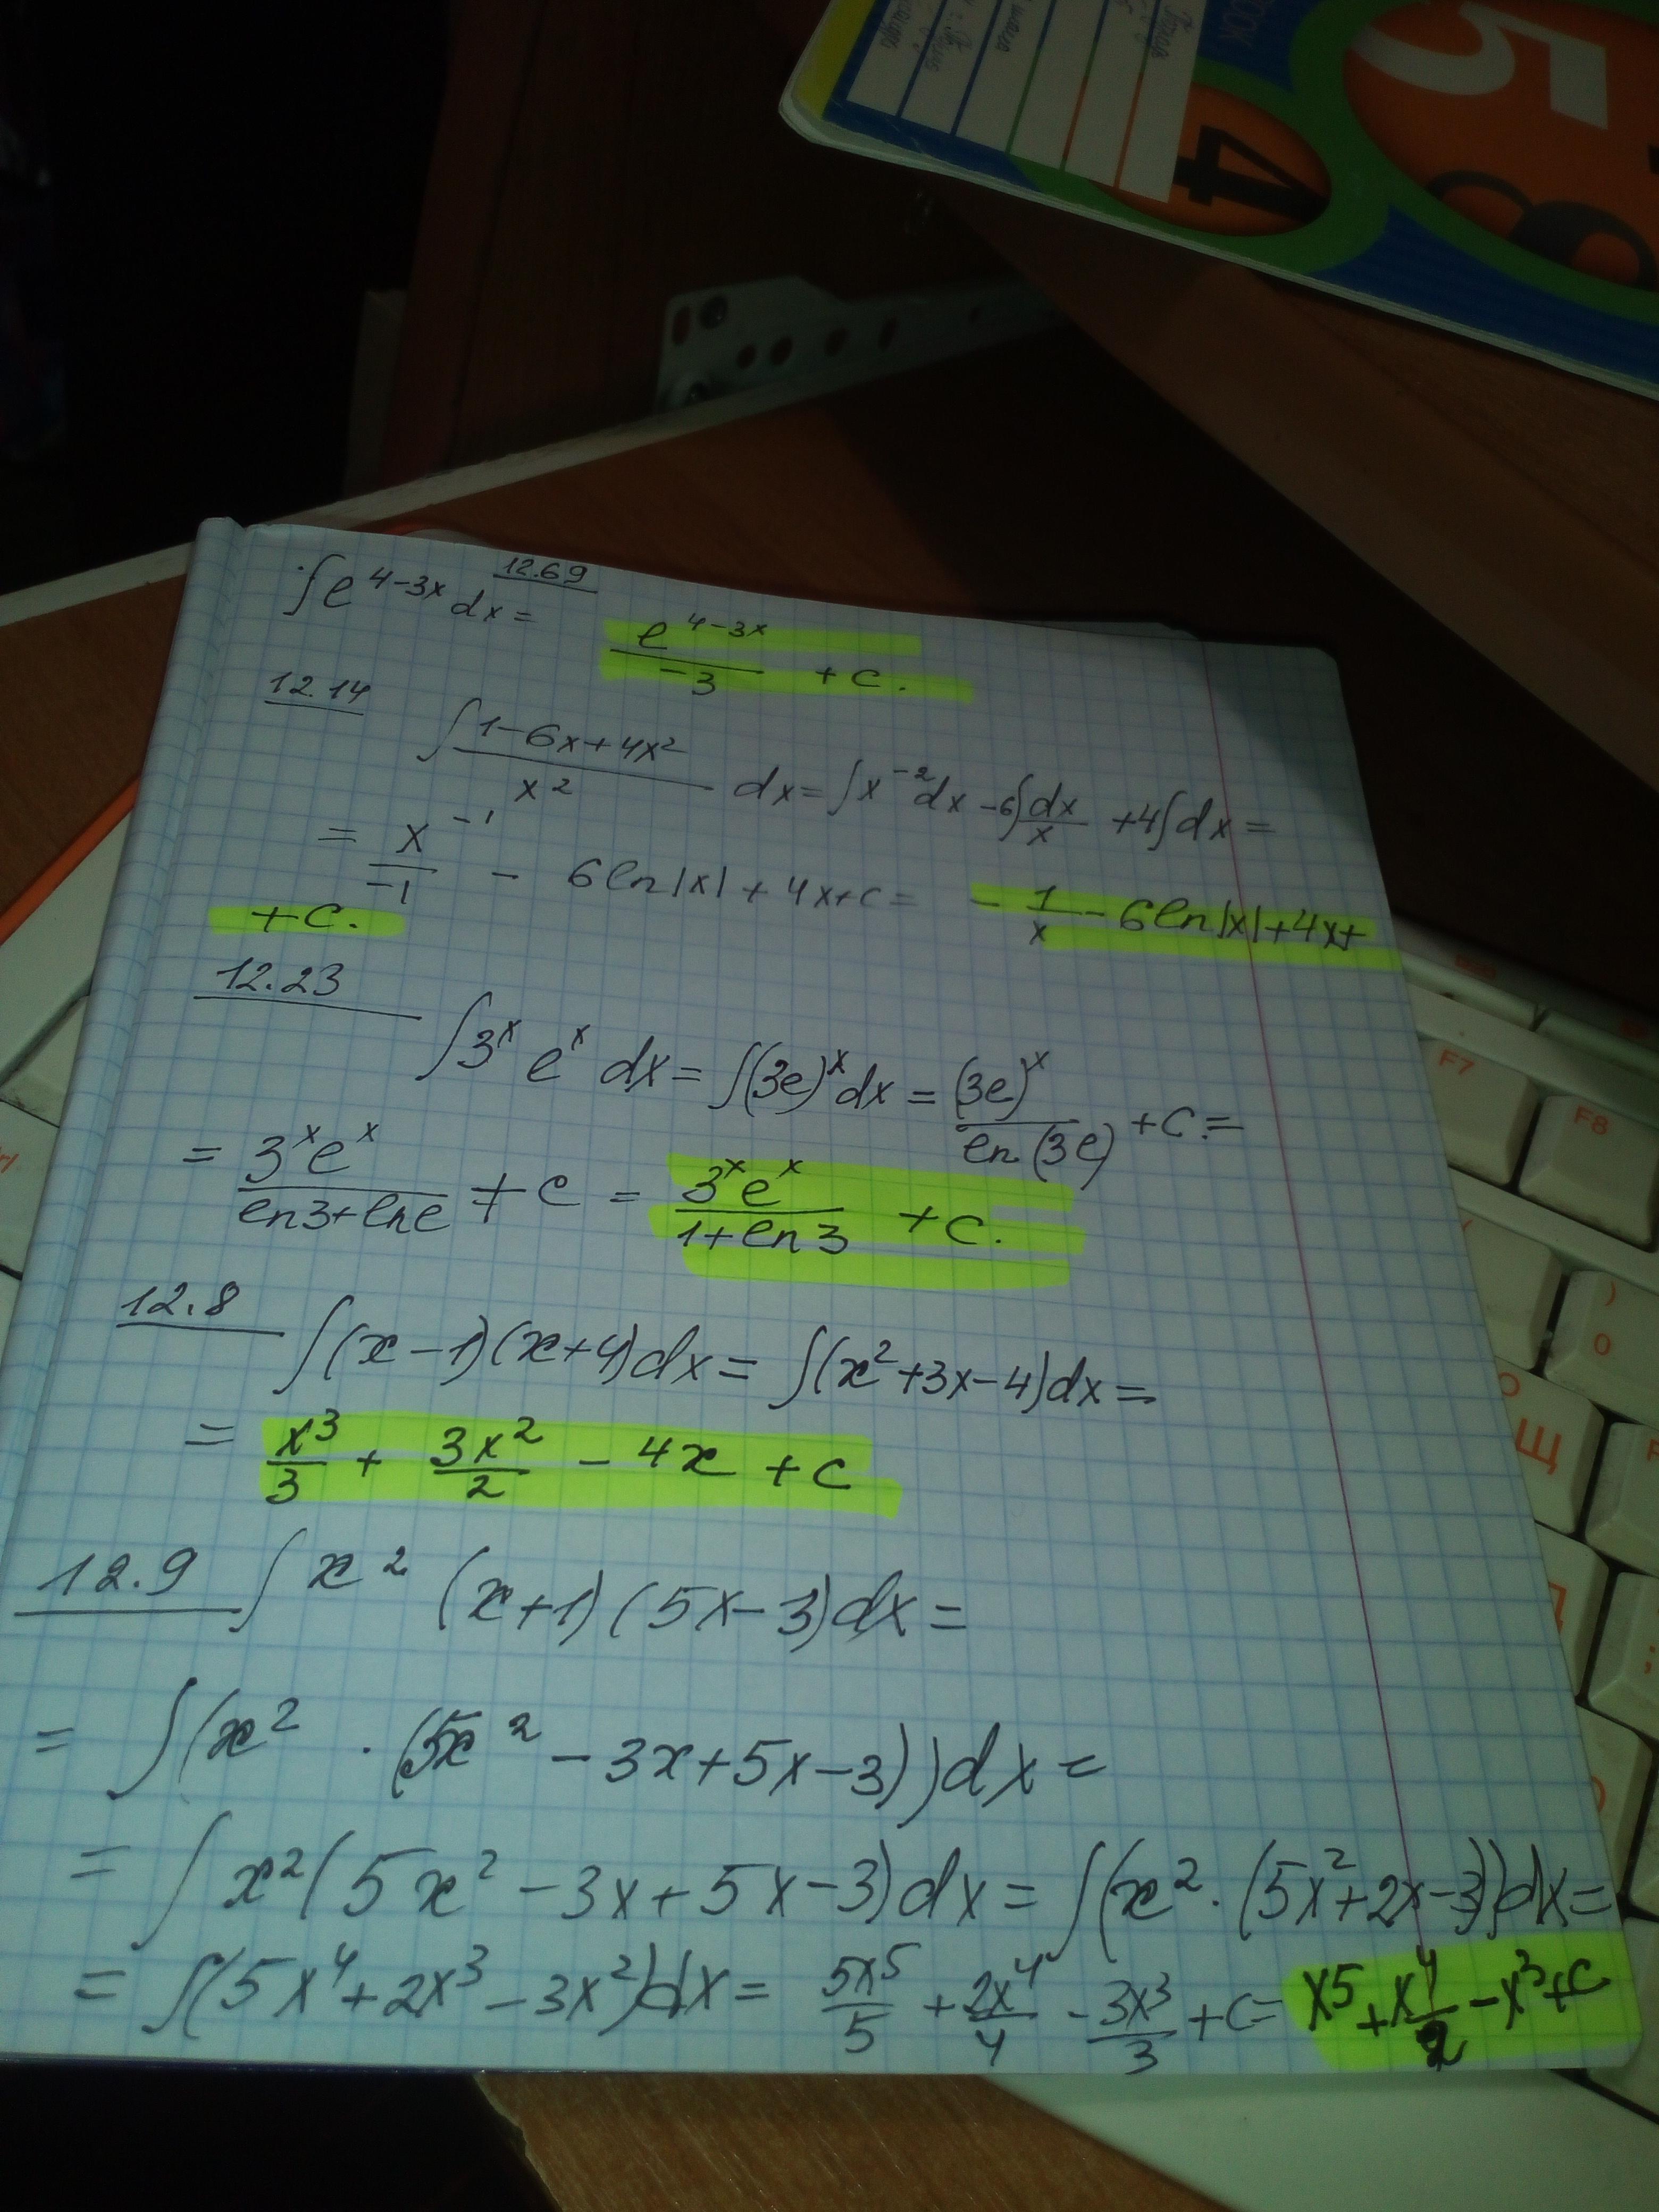 ООК
5
4
6
12.69
∫e^{4-3x} dx = \frac{e^{4-3x}}{-3} + C.
12.14
∫\frac{1-6x+4x²}{x²} dx = ∫x^{-2}dx - 6∫\frac{dx}{x} + 4∫dx =
= \frac{x^{-1}}{-1} - 6ln|x| + 4x + C = -\frac{1}{x} - 6ln|x| + 4x +
+ C.
12.23
∫3^x e^x dx = ∫(3e)^x dx = \frac{(3e)^x}{ln(3e)} + C =
= \frac{3^x e^x}{ln3+lne} + C = \frac{3^x e^x}{1+ln3} + C.
12.8 ∫(x-1)(x+4)dx = ∫(x²+3x-4)dx =
= \frac{x³}{3} + \frac{3x²}{2} - 4x + C
12.9 ∫x² (x+1)(5x-3)dx =
= ∫(x² · (5x² - 3x + 5x - 3))dx =
= ∫x²(5x² - 3x + 5x - 3)dx = ∫(x² · (5x² + 2x - 3))dx =
= ∫(5x⁴ + 2x³ - 3x²)dx = \frac{5x⁵}{5} + \frac{2x⁴}{4} - \frac{3x³}{3} + C = x⁵ + \frac{x⁴}{2} - x³ + C
F7
F8
)
0
Щ
;